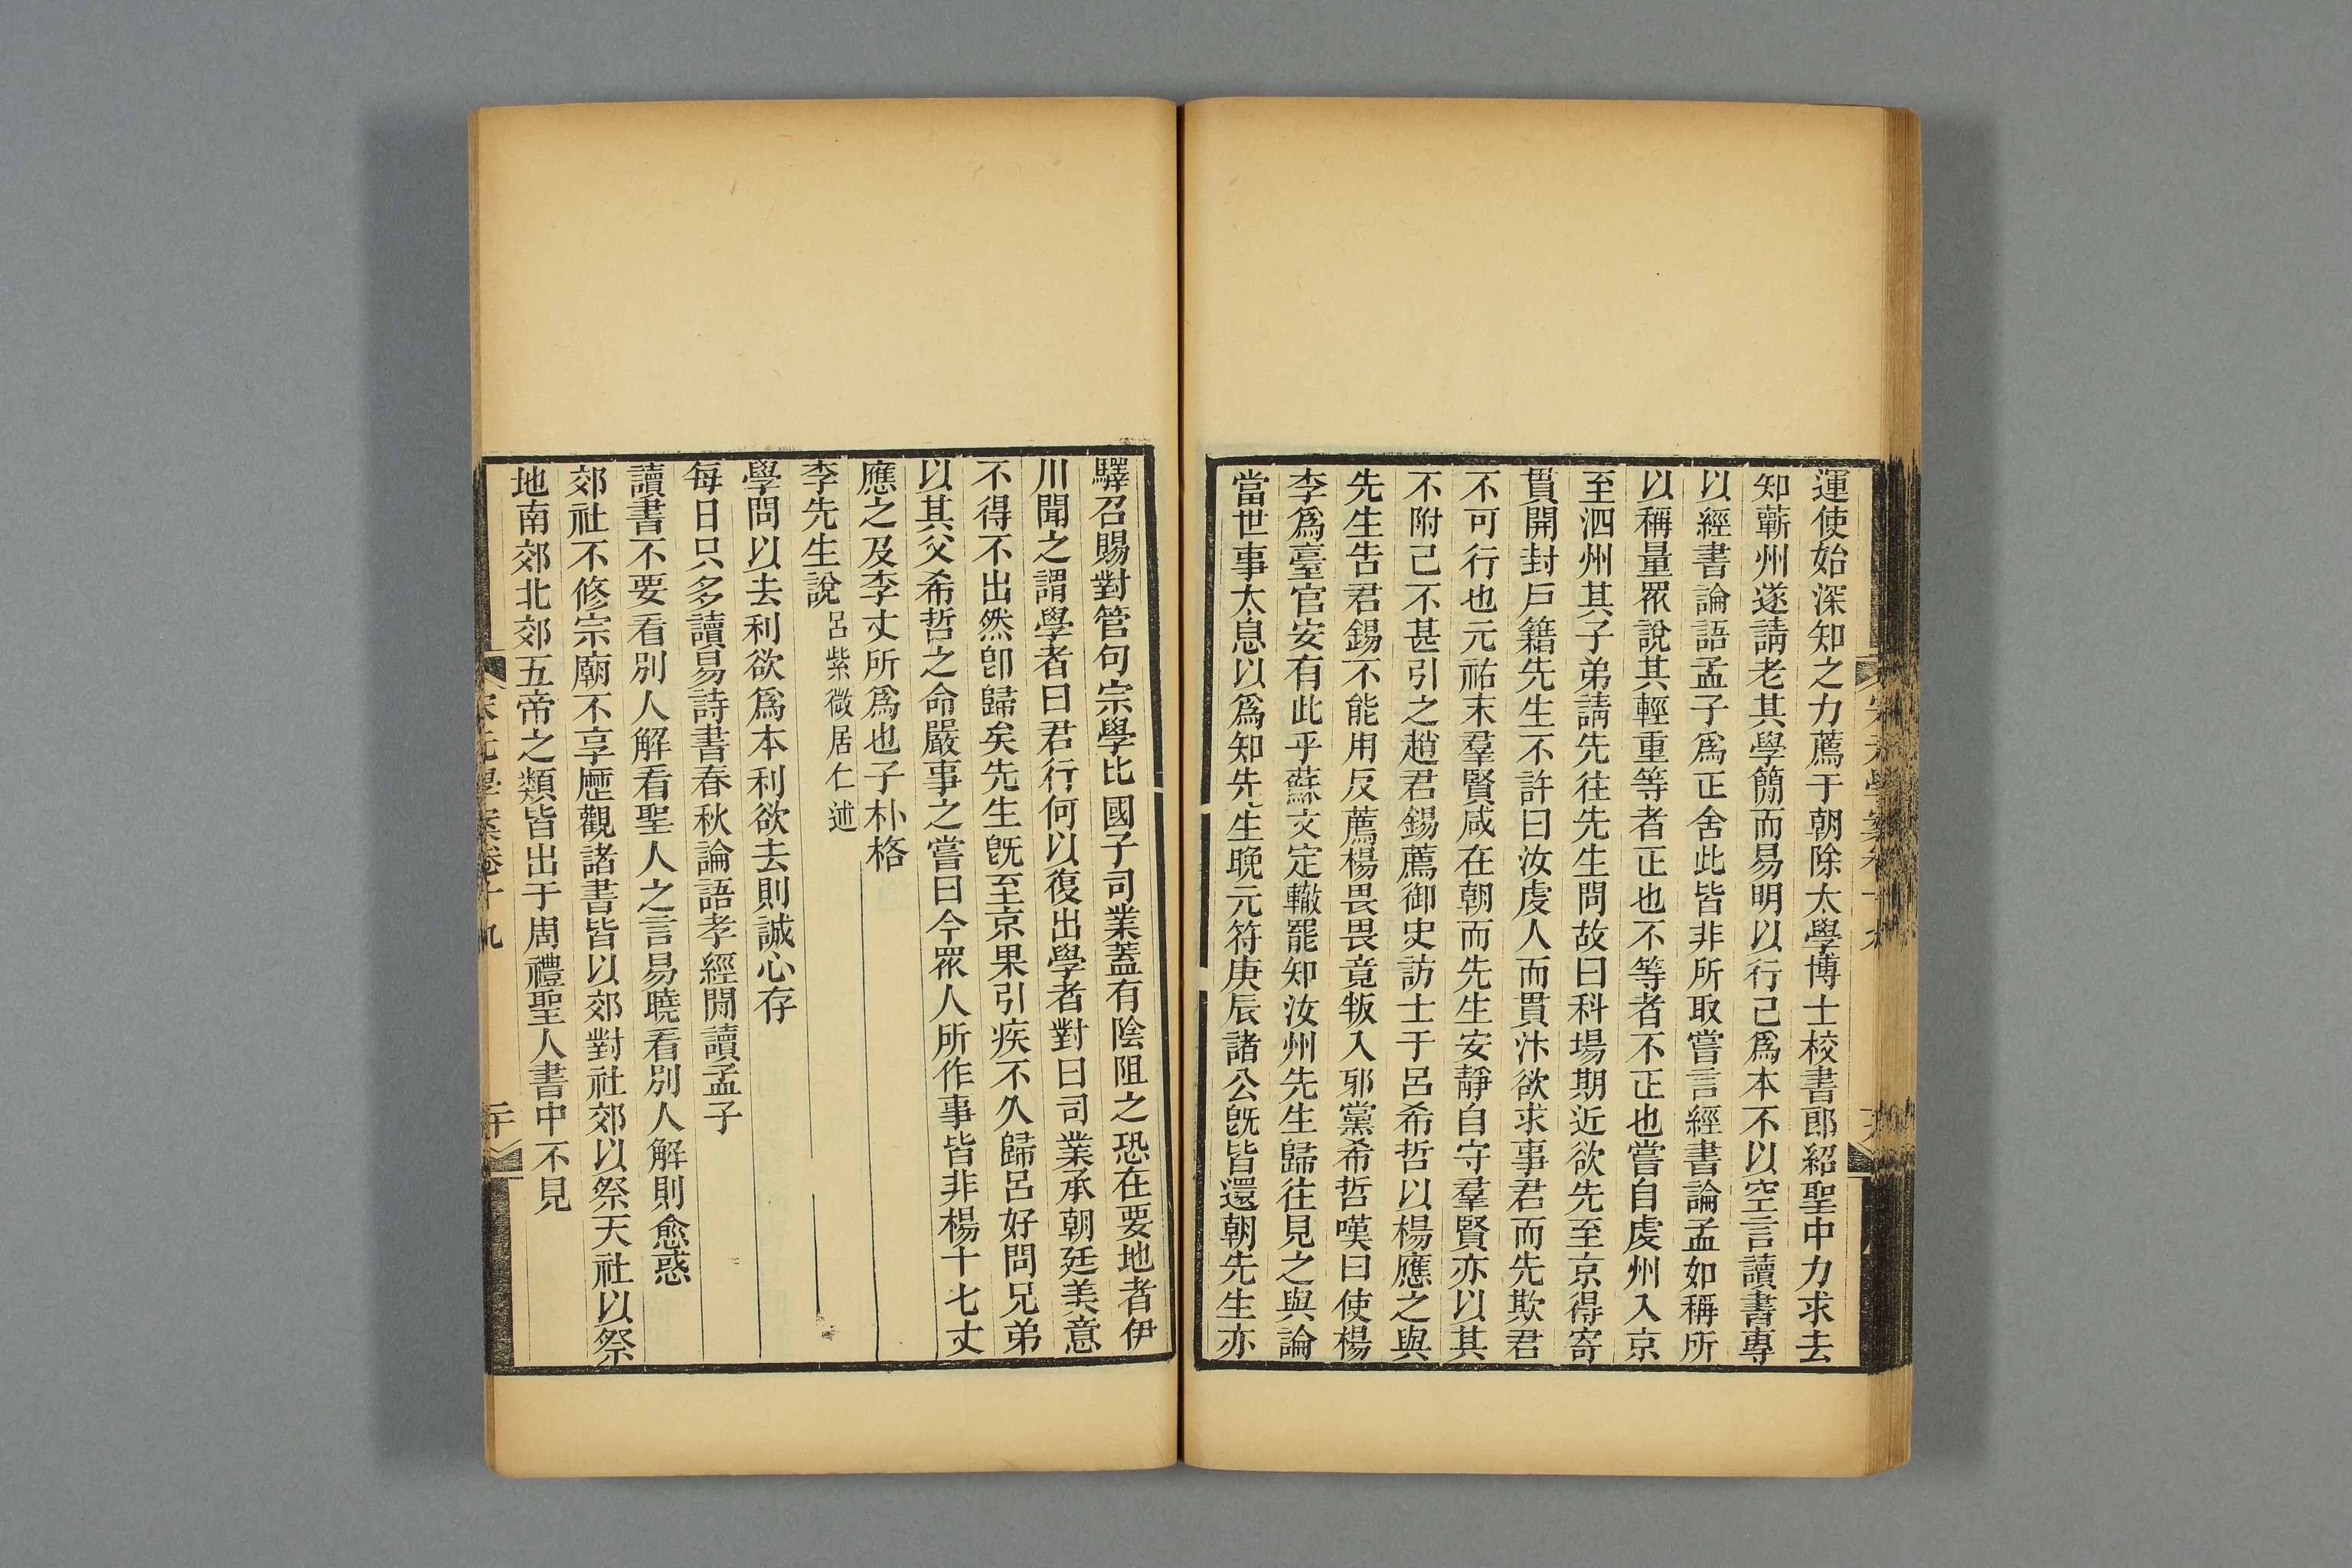 運使始深知之力薦于朝除太學博士校書郎紹聖中力求去
知蘄州遂請老其學簡而易明以行己爲本不以空言讀書專
以經書論語孟子爲正舍此皆非所取嘗言經書論孟如稱所
以稱量眾說其輕重等者正也不等者不正也嘗自虔州入京
至泗州其子弟請先往先生問故曰科場期近欲先至京得寄
貫開封戶籍先生不許曰汝虔人而貫汴欲求事君而先欺君
不可行也元祐末羣賢咸在朝而先生安靜自守羣賢亦以其
不附己不甚引之趙君錫薦御史訪士于呂希哲以楊應之與
先生告君錫不能用反薦楊畏畏竟叛入邪黨希哲嘆曰使楊
李爲臺官安有此乎蘇文定轍罷知汝州先生歸往見之與論
當世事太息以爲知先生晚元符庚辰諸公旣皆還朝先生亦
驛召賜對管句宗學比國子司業蓋有陰阻之恐在要地者伊
川聞之謂學者曰君行何以復出學者對曰司業承朝廷美意
不得不出然卽歸矣先生旣至京果引疾不久歸呂好問兄弟
以其父希哲之命嚴事之嘗曰今眾人所作事皆非楊十七丈
應之及李丈所爲也子朴格
李先生說呂紫微居仁述
學問以去利欲爲本利欲去則誠心存
每日只多讀易詩書春秋論語孝經閒讀孟子
讀書不要看別人解看聖人之言易曉看別人解則愈惑
郊社不修宗廟不享歷觀諸書皆以郊對社郊以祭天社以祭
地南郊北郊五帝之類皆出于周禮聖人書中不見
宋元學案卷十九
二十